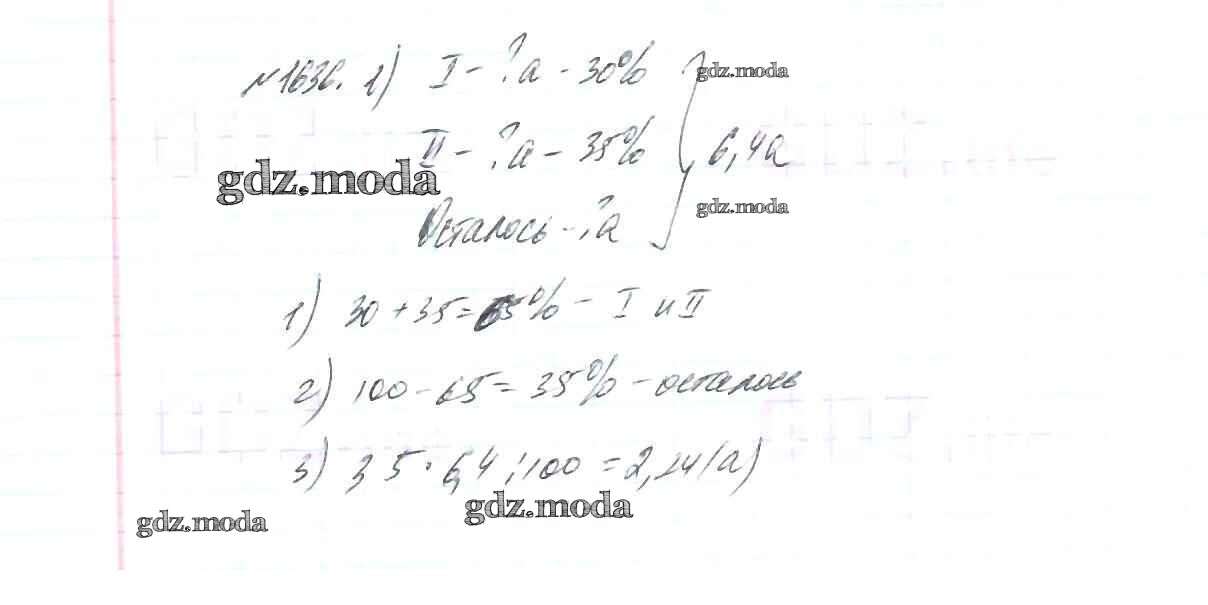 №1636. 1) I - ?а - 30%
gdz.moda
II - ?а - 35%
6,4а
gdz.moda
Осталось - ?а
gdz.moda
1) 30 + 35 = 65% - I и II
2) 100 - 65 = 35% - осталось
3) 35 · 6,4 : 100 = 2,24 (а)
gdz.moda
gdz.moda